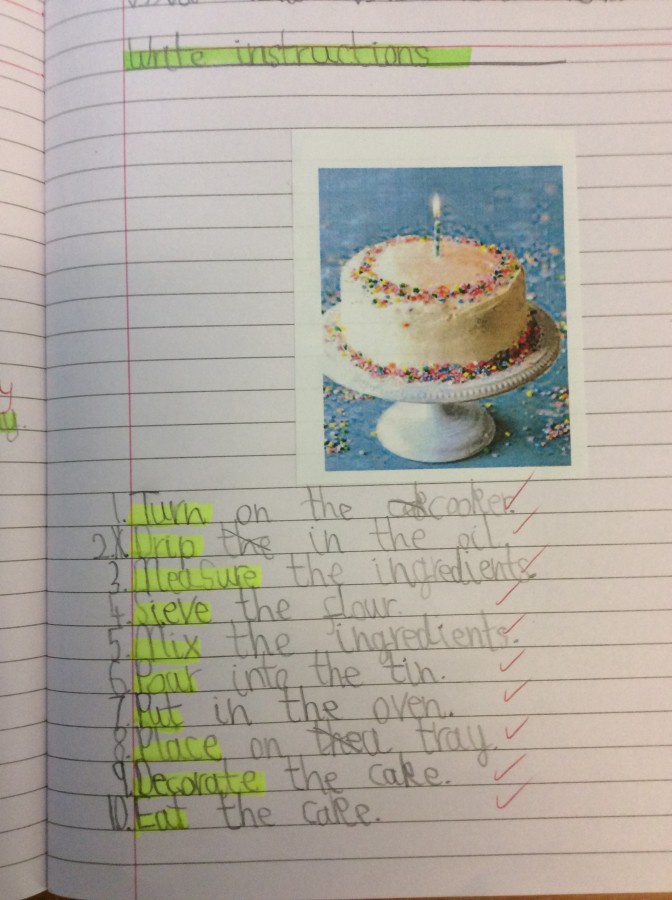 Write instructions
1. Turn on the cooker.
2. Drip in the oil.
3. Measure the ingredients.
4. Sieve the flour.
5. Mix the ingredients.
6. Pour into the tin.
7. Put in the oven.
8. Place on a tray.
9. Decorate the cake.
10. Eat the cake.